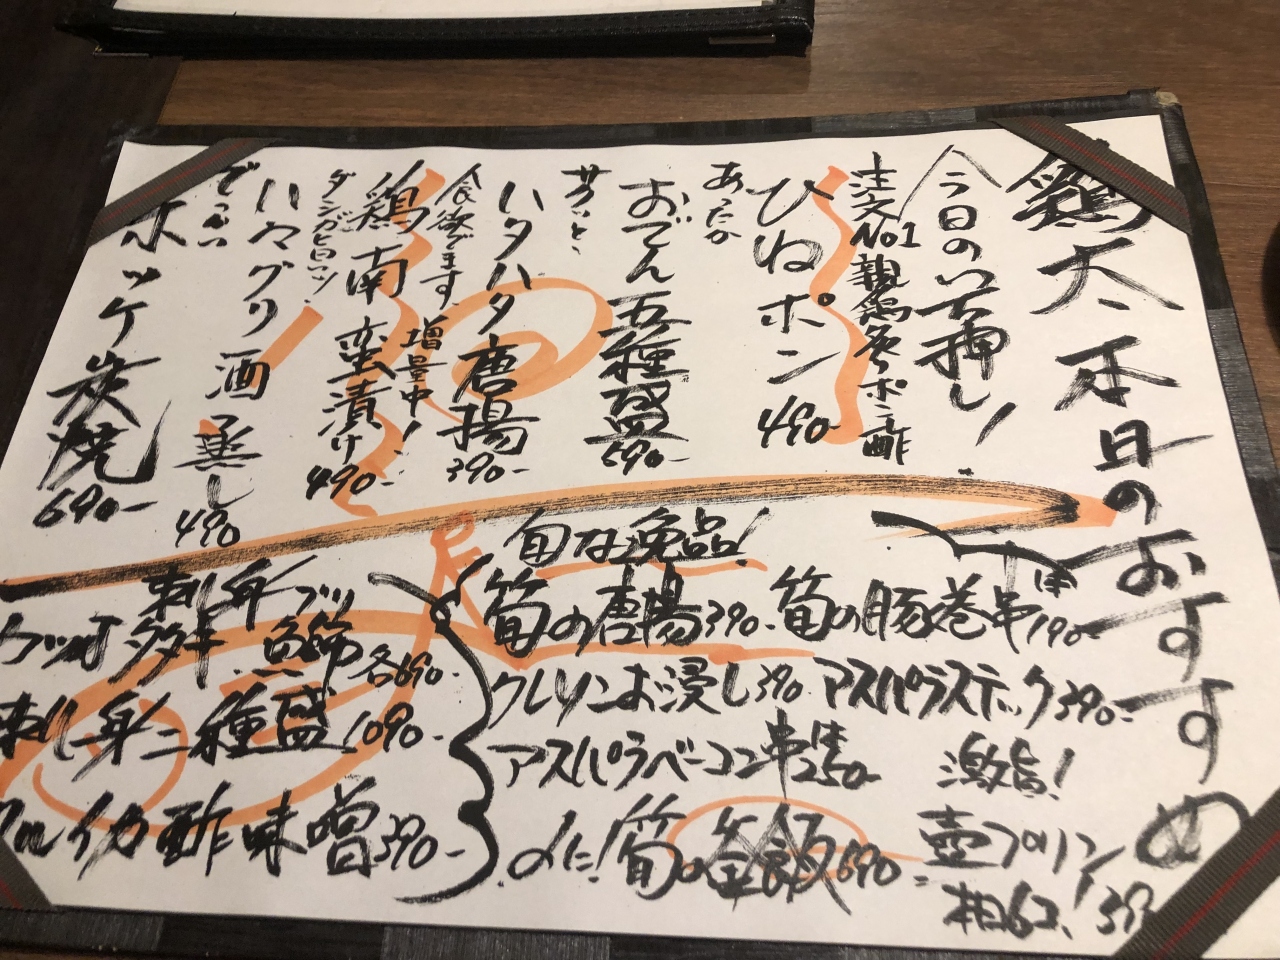 鶏大 本日のおすすめ
今日のイチ押し!
注文No1 親鶏炙りポン酢
ひねポン 490-
あったか
おでん五種盛 590-
サクッと
ハタハタ唐揚 390-
食欲でます 増量中!
鶏南蛮漬け 490-
ハマグリ酒蒸し 490
でっかい
ホッケ炭焼 690-
旬な逸品!
筍の唐揚 390- 筍の豚巻串 190-
クレソンお浸し 390 アスパラスティック 390-
アスパラベーコン串 250-
〆に!筍の釜飯 690-
激旨!
壺プリン
刺身ブツ
カツオタタキ
各690-
刺し身二種盛 1090-
イカ酢味噌 390-